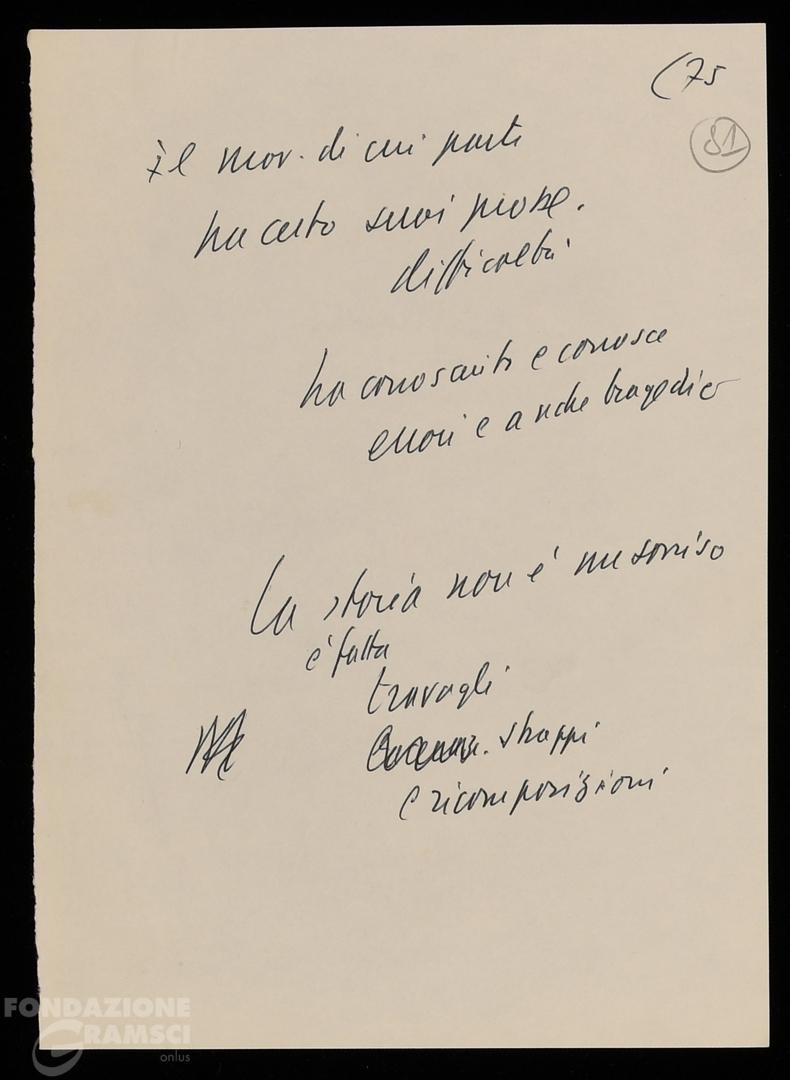 (75
81
Il mov. di cui parte
ha certo suoi probl.
difficoltà
ha conosciuto e conosce
errori e anche tragedie
La storia non è un sorriso
è fatta
travagli
strappi
e ricomposizioni
FONDAZIONE
GRAMSCI
onlus